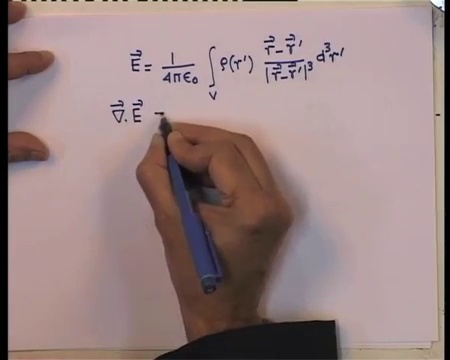 E⃗ = 1/4πε₀ ∫_V ρ(r') (r⃗ - r⃗')/|r⃗ - r⃗'|³ d³r'
∇⃗. E⃗ -